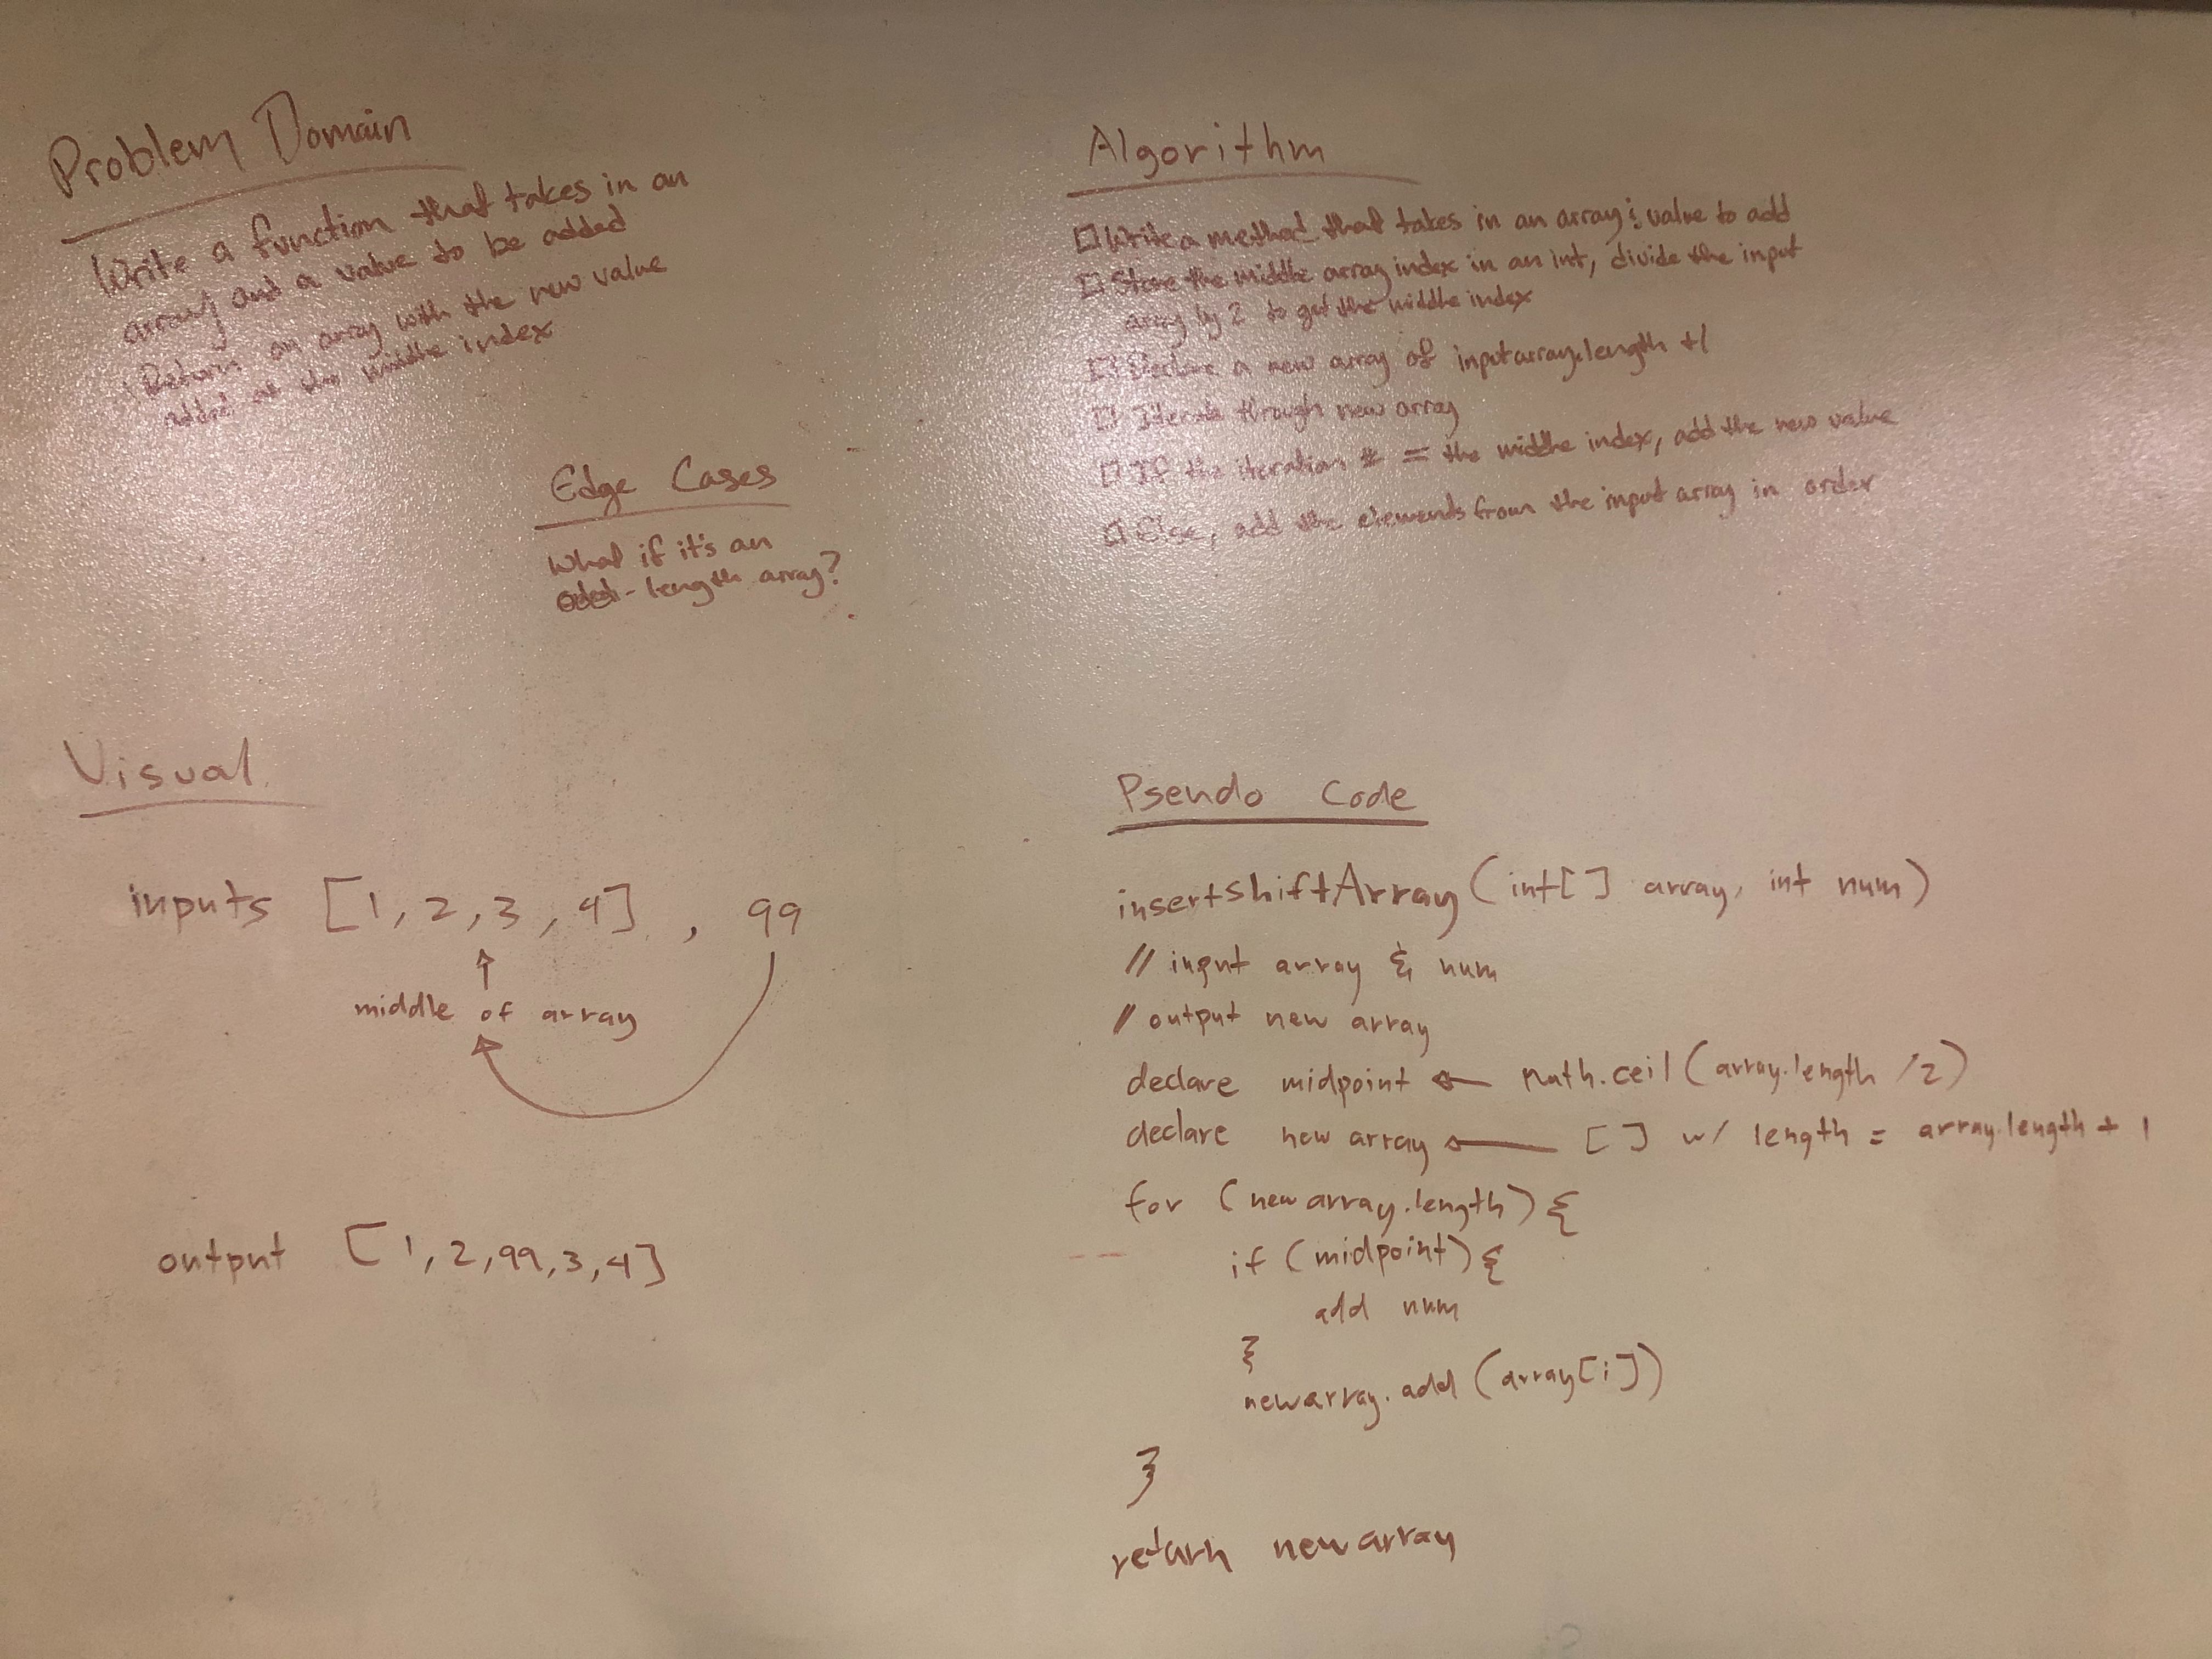 Problem Domain
Write a function that takes in an
array and a value to be added
Return an array with the new value
added at the middle index
Edge Cases
What if it's an
odd-length array?
Visual
inputs [1, 2, 3, 4], 99
middle of array
output [1, 2, 99, 3, 4]
Algorithm
□ Write a method that takes in an array & value to add
□ Store the middle array index in an int, divide the input
array by 2 to get the middle index
□ Declare a new array of inputarray.length +1
□ Iterate through new array
□ If the iteration # = the middle index, add the new value
□ Else, add the elements from the input array in order
Pseudo Code
insertShiftArray(int[] array, int num)
// input array & num
// output new array
declare midpoint ← Math.ceil(array.length /2)
declare new array ← [] w/ length = array.length + 1
for (new array.length) {
if (midpoint) {
add num
}
newarray.add(array[i])
}
return newarray